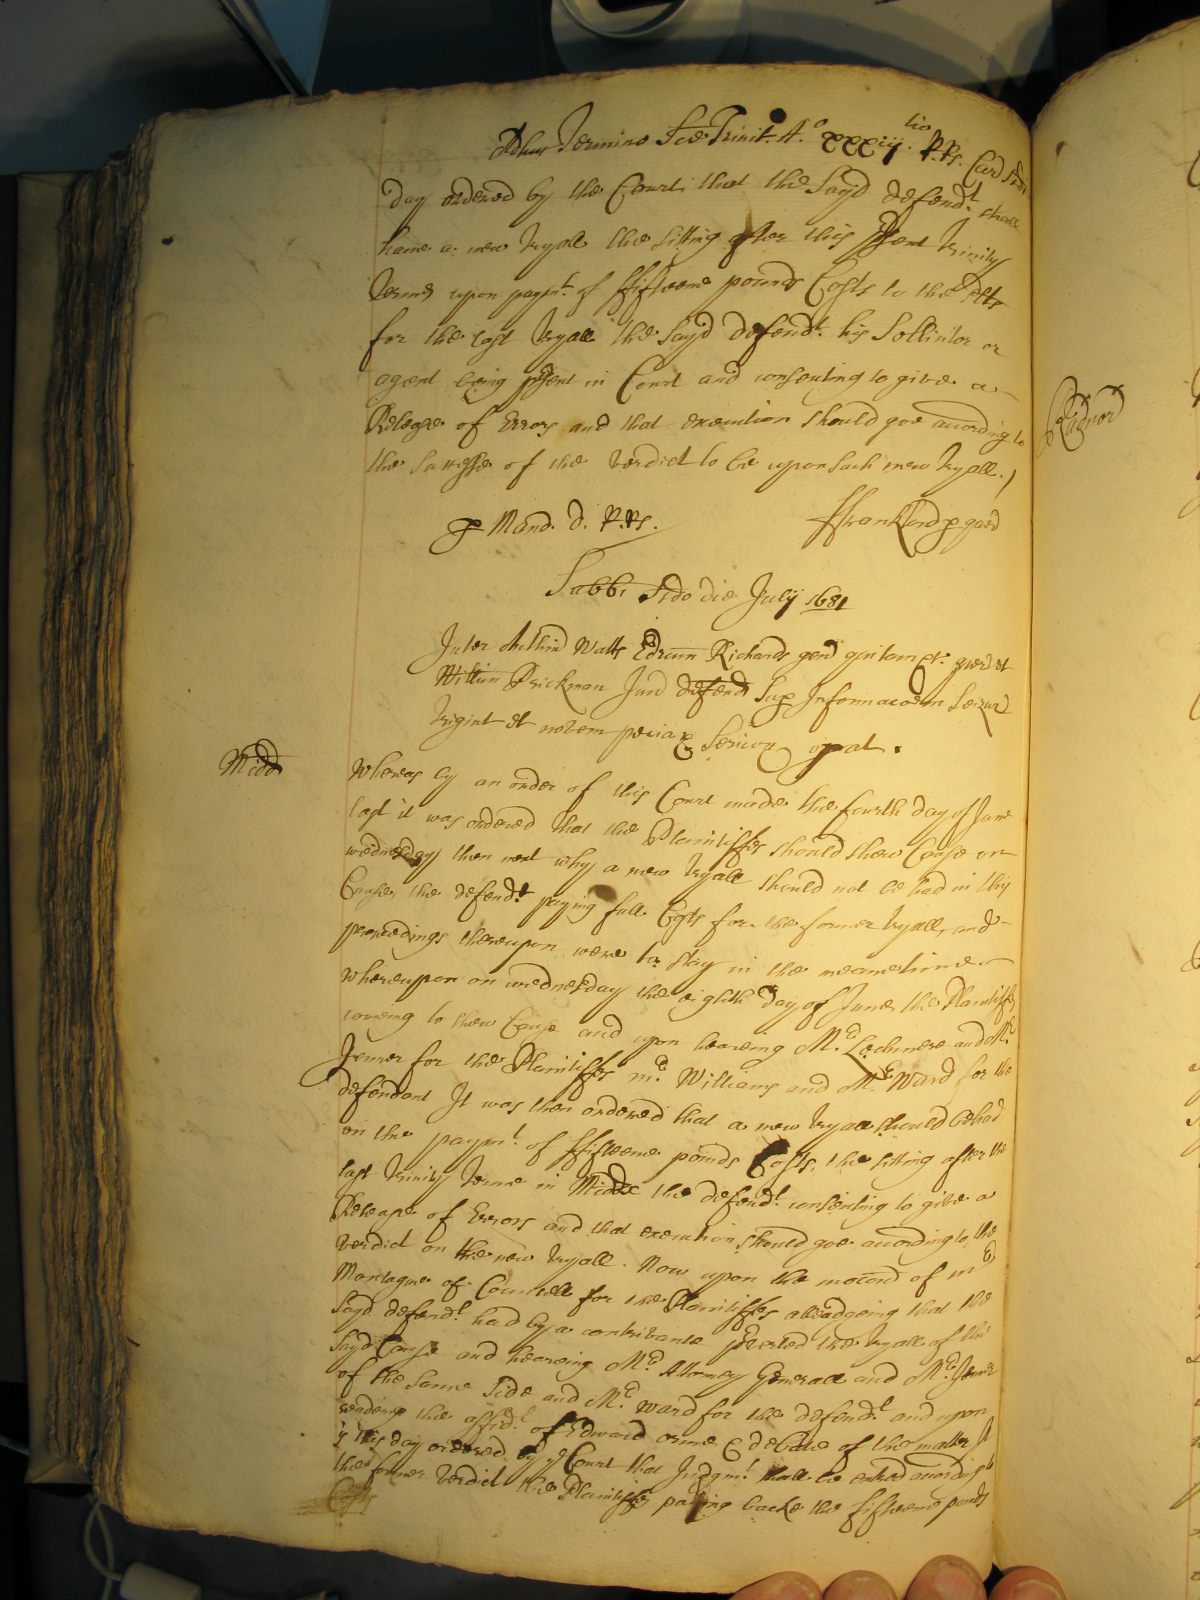 Adhuc Termino Sce Trinit. Ao xxxiij tio R.Rs. Car Sedi
day ordered by the Court that the Sayd defendt shall
have a new tryall the sitting after this psent Trinity
Terme upon paymt of ffifteene pounds Costs to the plts
for the last tryall the Sayd defendt his Sollicitor or
agent being psent in Court and consenting to give a
Release of Errors and that execution should goe according to
the successe of the verdict to be upon such new tryall.
p Mand. d. R.Rs. ffrankland p quer
Sabbi Sedo die July 1681
Inter Watts Edrum Richards gen qui tam etc quer et
Willim Prickman Jun defend Sup Informacoem Seizur
trigint et novem pecia Sericor opat.
Midd
Whereas by an order of this Court made the fourth day of June
last it was ordered that the Plaintiffes should shew Cause on
wednesday then next why a new tryall should not be had in this
Cause the defendt paying full Costs for the former tryall, and
proceedings thereupon were to stay in the meanetime.
Whereupon on wednesday the eighth day of June the Plaintiffs
comeing to shew Cause and upon heareing Mr Lechmere and Mr
Jenner for the Plaintiffes mr Williams and Mr Ward for the
defendant It was then ordered that a new tryall should be had
on the paymt of ffifteene pounds Costs, the sitting after the
last Trinity Terme in Middx the defendt consenting to give a
Release of Errors and that execution should goe according to the
verdict on the new tryall. Now upon the mocond of mr
Montague of Councell for the Plaintiffes alleadgeing that the
Sayd defendt had by a contrivance pvented the tryall of the
Sayd Cause and heareing Mr Attorney Generall and Mr Jenner
of the same side and Mr Ward for the defendt and upon
reading the affidt of Edward orme & debate of the matter It
is this day ordered by ye Court that Judgmt shall be entred according to
the former verdict the Plaintiffes paying backe the fifteene pounds
Costs
Radnor